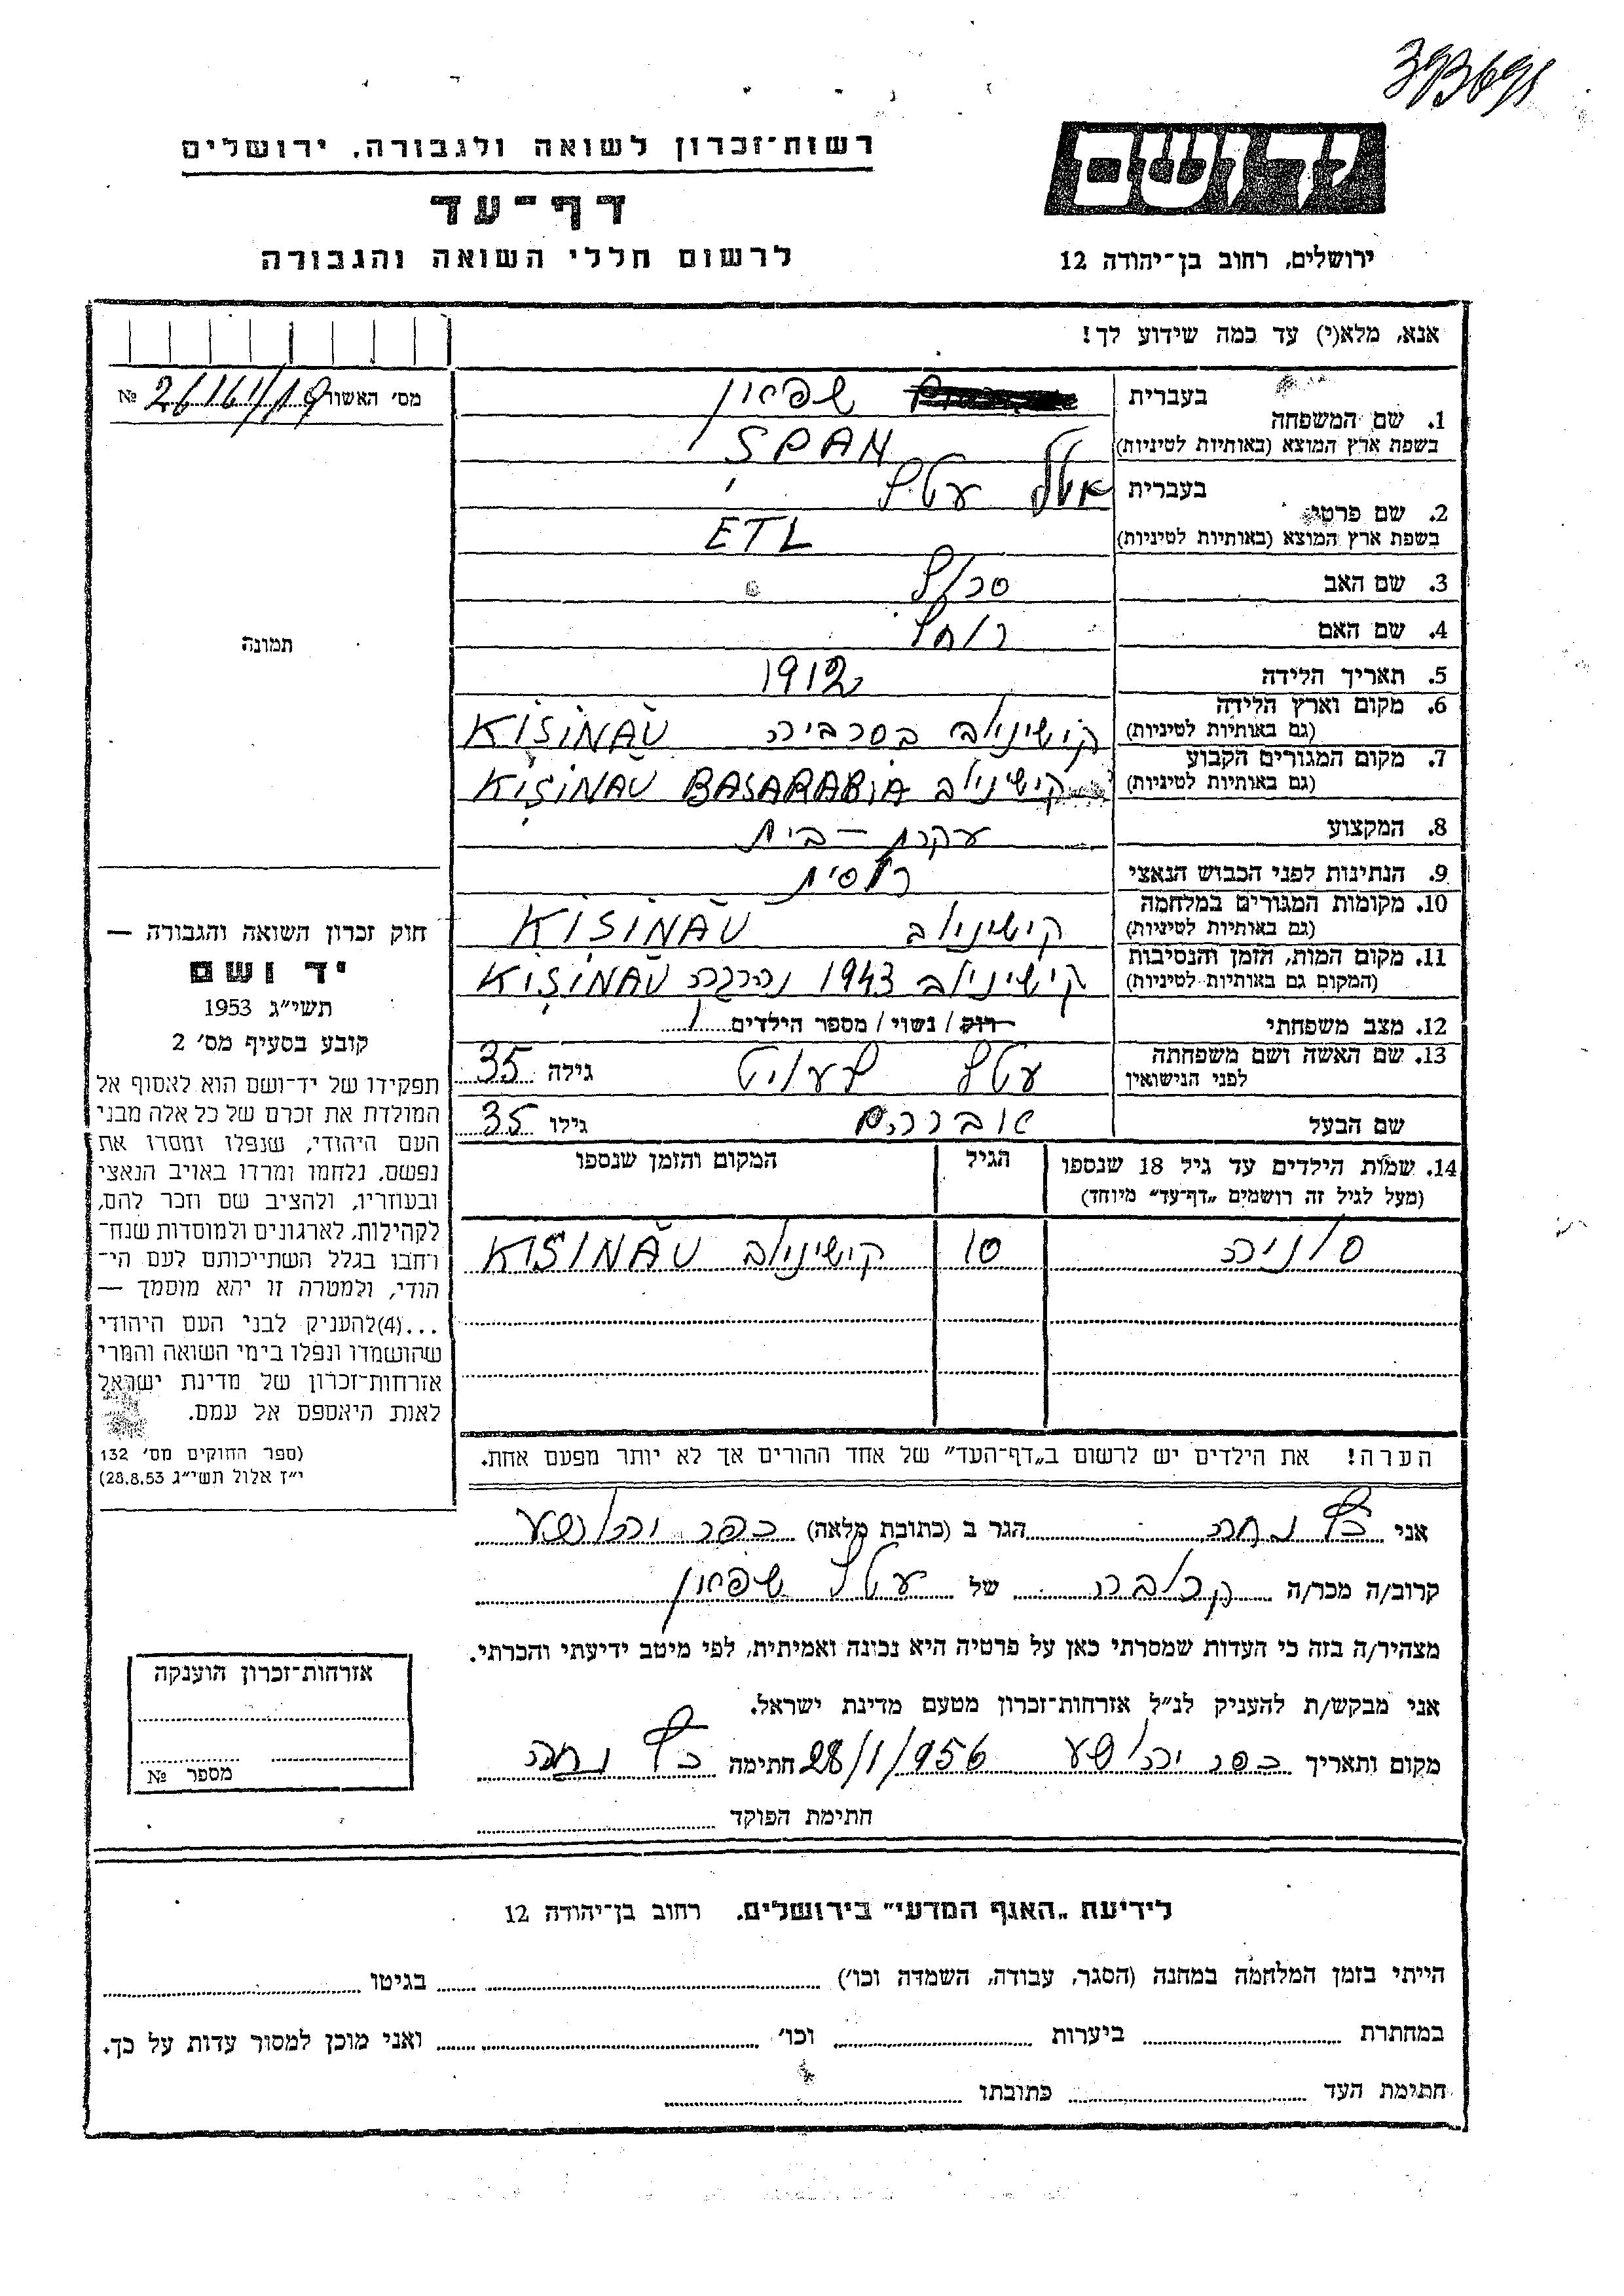 393698
רשות־זכרון לשואה ולגבורה, ירושלים
דף־עד
לרשום חללי השואה והגבורה
יד ושם
ירושלים, רחוב בן־יהודה 12
אנא, מלא(י) עד כמה שידוע לך!
מס׳ האשור 26161/19 №
1. שם המשפחה בעברית שפאן
בשפת ארץ המוצא (באותיות לטיניות) ŞPAN
2. שם פרטי בעברית אטל עטל
בשפת ארץ המוצא (באותיות לטיניות) ETL
3. שם האב סרול
4. שם האם רוחל
5. תאריך הלידה 1912
6. מקום וארץ הלידה (גם באותיות לטיניות) קישינוב בסרביה KIŞINĂU
7. מקום המגורים הקבוע (גם באותיות לטיניות) קישינוב KIŞINAU BASARABIA
8. המקצוע עקרת־בית
9. הנתינות לפני הכבוש הנאצי רוסית
10. מקומות המגורים במלחמה (גם באותיות לטיניות) קישינוב KIŞINĂU
11. מקום המות, הזמן והנסיבות (המקום גם באותיות לטיניות) קישינוב 1943 נהרגה KIŞINĂU
12. מצב משפחתי רוק / נשוי / מספר הילדים 1
13. שם האשה ושם משפחתה לפני הנישואין עטל גילה 35
שם הבעל אברהם גילו 35
14. שמות הילדים עד גיל 18 שנספו (מעל לגיל זה רושמים „דף־עד״ מיוחד) הגיל המקום והזמן שנספו
סוניה 10 קישינוב KISINĂU
הערה! את הילדים יש לרשום ב„דף־העד״ של אחד ההורים אך לא יותר מפעם אחת.
תמונה
חוק זכרון השואה והגבורה —
יד ושם
תשי״ג 1953
קובע בסעיף מס׳ 2
תפקידו של יד־ושם הוא לאסוף אל
המולדת את זכרם של כל אלה מבני
העם היהודי, שנפלו ומסרו את
נפשם, נלחמו ומרדו באויב הנאצי
ובעוזריו, ולהציב שם וזכר להם,
לקהילות, לארגונים ולמוסדות שנח־
רחבו בגלל השתייכותם לעם הי־
הודי, ולמטרה זו יהא מוסמך —
...(4)להעניק לבני העם היהודי
שהושמדו ונפלו בימי השואה והמרי
אזרחות־זכרון של מדינת ישראל
לאות היאספם אל עמם.
(ספר החוקים מס׳ 132
י״ז אלול תשי״ג 28.8.53)
אני נחה הגר ב (כתובת מלאה) כפר יהושע
קרוב/ה מכר/ה קרובה של עטל שפאן
מצהיר/ה בזה כי העדות שמסרתי כאן על פרטיה היא נכונה ואמיתית, לפי מיטב ידיעתי והכרתי.
אני מבקש/ת להעניק לנ״ל אזרחות־זכרון מטעם מדינת ישראל.
מקום ותאריך כפר יהושע 28/1/956 חתימה נחה
חתימת הפוקד
אזרחות־זכרון הוענקה
מספר №
לידיעת „האגף המדעי״ בירושלים. רחוב בן־יהודה 12
הייתי בזמן המלחמה במחנה (הסגר, עבודה, השמדה וכו׳) בגיטו
במחתרת ביערות וכו׳ ואני מוכן למסור עדות על כך.
חתימת העד כתובתו